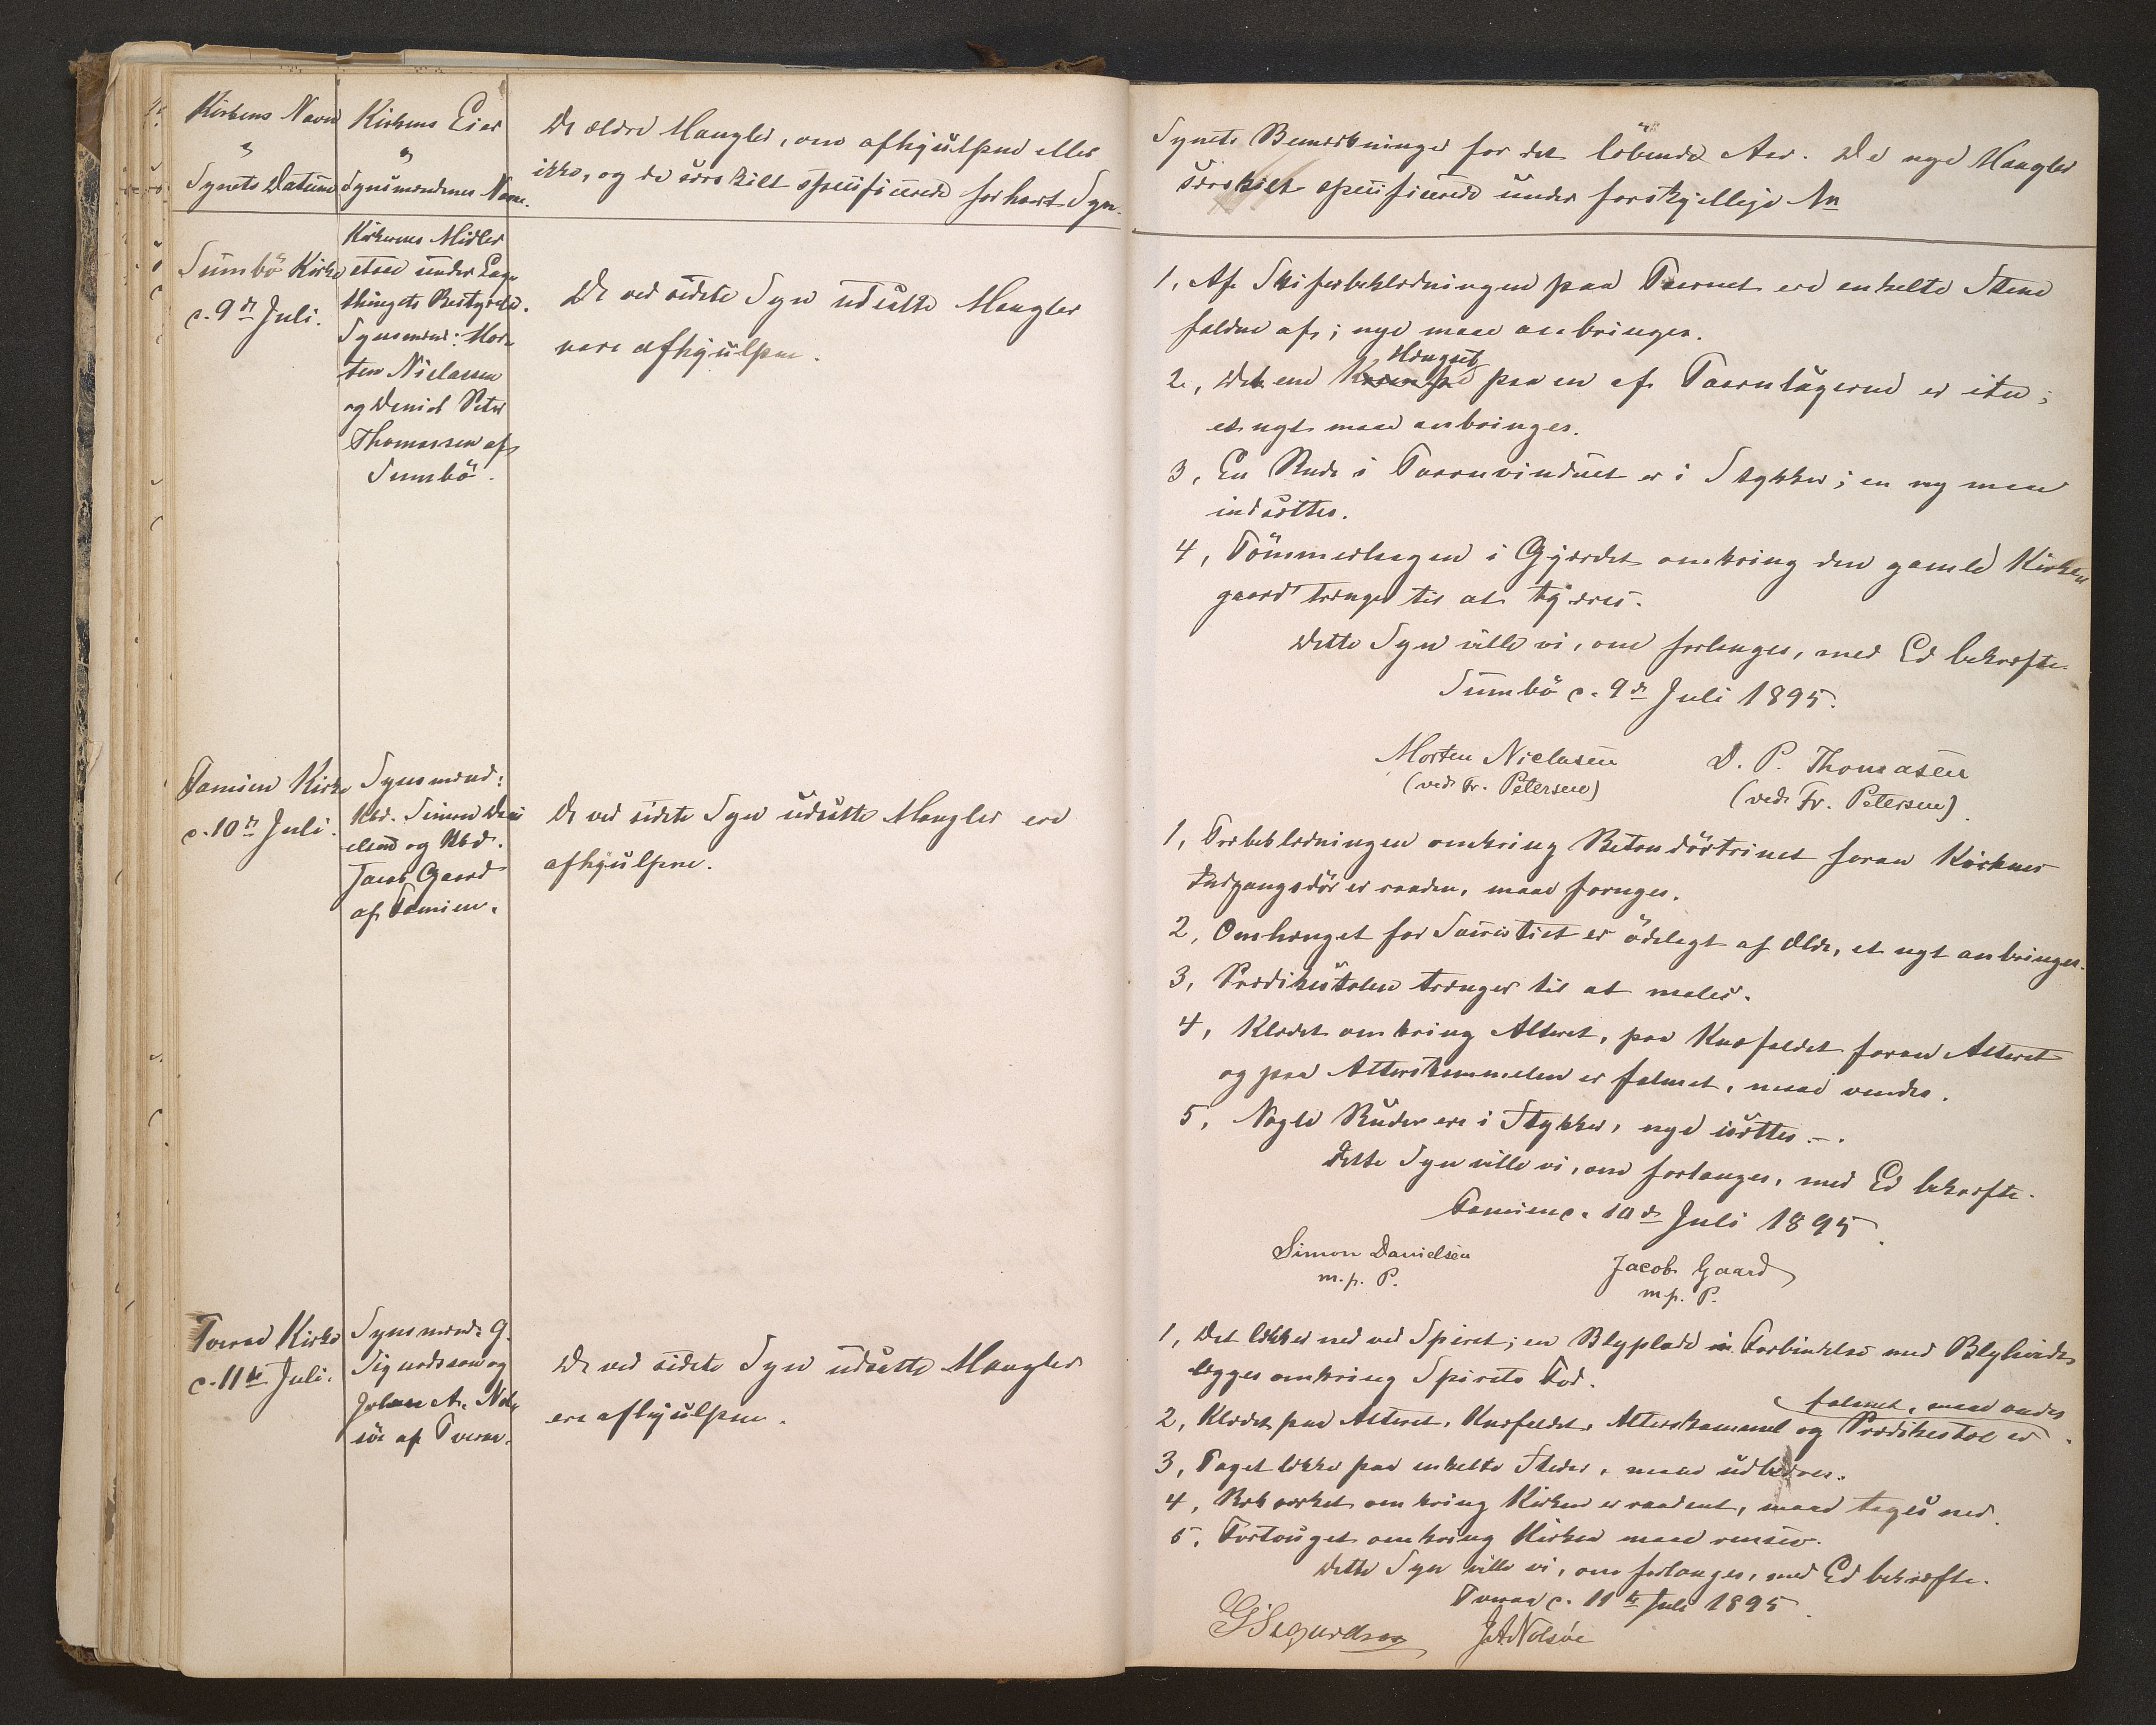 Kirkens Navn
"
Synets Datum
Kirkens Eier
"
Synsmændenes Navne.
De ældre Mangler, om afhjulpne eller
ikke, og da særskilt specificerede for hvert Syn.
Sumbö Kirke
d. 9de Juli.
Kirkernes Midler
staae under Lag-
thingets Bestyrelse.
Synsmænd: Mor-
ten Niclassen
og Daniel Peter
Thomassen af
Sumbö.
De ved sidste Syn udsatte Mangler
vare afhjulpne.
Famien Kirke
d. 10de Juli.
Synsmænd:
Kbd. Simon Dani
elsen og Kbd.
Jacob Gaard
af Famien.
De ved sidste Syn udsatte Mangler ere
afhjulpne.
Tveraa Kirke
d. 11te Juli.
Synsmænd: G.
Sigurdsson og
Johan A. Nol-
söe af Tveraa.
De ved sidste Syn udsatte Mangler
ere afhjulpne.
Synets Bemærkninger for det löbende Aar. De nye Mangler
særskilt specificerede under forskjellige No
1, Af Skiferbeklædningen paa Taarnet ere enkelte Stene
faldne af; nye maae anbringes.
2, Det ene Hængsel paa en af Taarnlugerne er itu;
et nyt maae anbringes.
3, En Rude i Taarnvinduet er i Stykker; en ny maae
indsættes.
4, Tömmerlagen i Gjærdet omkring den gamle Kirke
gaard trænger til at tjæres.
Dette Syn ville vi, om forlanges, med Ed bekræfte.
Sumbö d. 9de Juli 1895.
Morten Niclasen
D. P. Thomasen
(ved Fr. Petersen)
(ved Fr. Petersen).
1, Træbeklædningen omkring Betondörtrinet foran Kirkens
Indgangsdör er raaden, maae fornyes.
2, Omhænget for Sacristiet er ödelagt af Ælde, et nyt anbringes.
3, Prædikestolen trænger til at males.
4, Klædet omkring Alteret, paa Knæfaldet foran Alteret
og paa Alterskammelen er falmet, maae vendes.
5, Nogle Ruder ere i Stykker, nye isættes.
Dette Syn ville vi, om forlanges, med Ed bekræfte.
Famien d. 10de Juli 1895.
Simon Danielsen
Jacob Gaard
m. p. P.
m. p. P.
1, Det lækker ned ved Spiret; en Blyplade i Forbindelse med Blyhvidt
lægges omkring Spirets Fod.
falmet, maae vendes
2, Klædet paa Alteret, Knæfaldet, Alterskammel og Prædikestol er
3, Taget lække paa enkelte Steder, maae udbedres.
4, Rækværket omkring Kirken er raadent, maae tages ned.
5, Fortouget omkring Kirken maae renses.
Dette Syn ville vi, om forlanges, med Ed bekræfte.
Tveraa d. 11te Juli 1895.
G Sigurdsson
JANolsøe